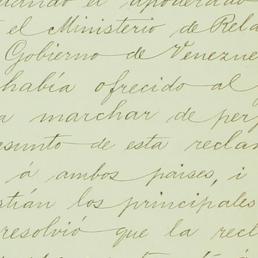 cuando el apoderado
el Ministerio de Rela
Gobierno de Venezue
había ofrecido al
a marchar de per
esunto de esta recla
á ambos paises, i
strán los principales
resolvió que la recl